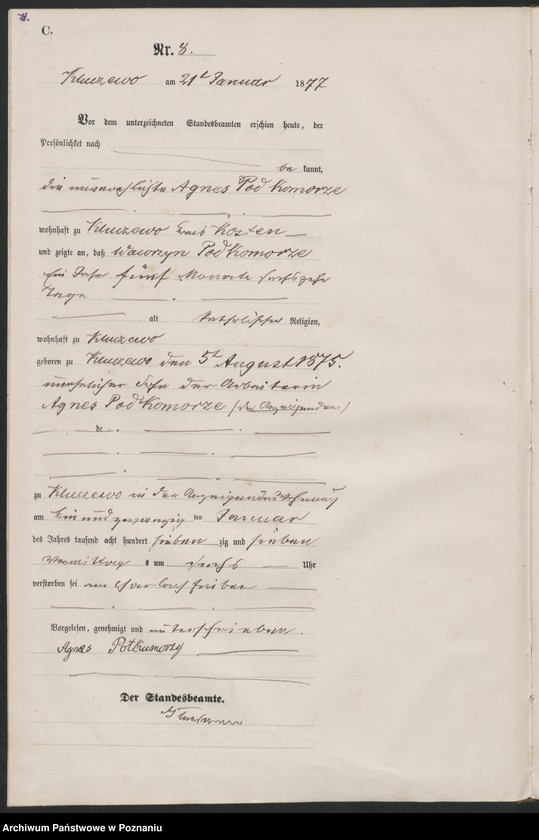 8.
C.
Nr. 8.
Kluczewo am 21t Januar 1877
Vor dem unterzeichneten Standesbeamten erschien heute, der
Persönlichkeit nach
be kannt,
die unverehelichte Agnes PodKomorze
wohnhaft zu Kluczewo Kreis Kosten
und zeigte an, daß Wawrzyn PodKomorze
Ein Jahr fünf Monate sechszehn
Tage
alt katholischer Religion,
wohnhaft zu Kluczewo
geboren zu Kluczewo den 5t August 1875.
unehelicher Sohn der Arbeiterin
Agnes PodKomorze (der Anzeigenden)
de
zu Kluczewo in der Anzeigenden Wohnung
am Ein und zwanzig ten Januar
des Jahres tausend acht hundert sieben zig und sieben
Vormittag s um sechs Uhr
verstorben sei
Vorgelesen, genehmigt und unterschrieben.
Agnes
Der Standesbeamte.
Archiwum Państwowe w Poznaniu